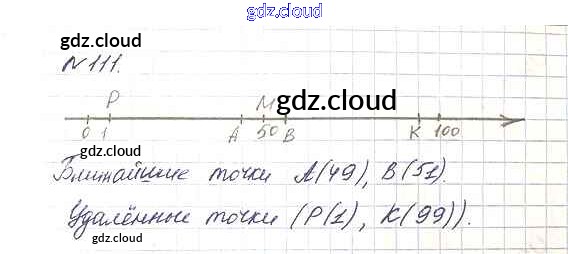 gdz.cloud
gdz.cloud
№111.
P M gdz.cloud
0 1 A 50 B K 100
gdz.cloud
Ближайшие точки A(49), B(51).
Удалённые точки (P(1), K(99)).
gdz.cloud